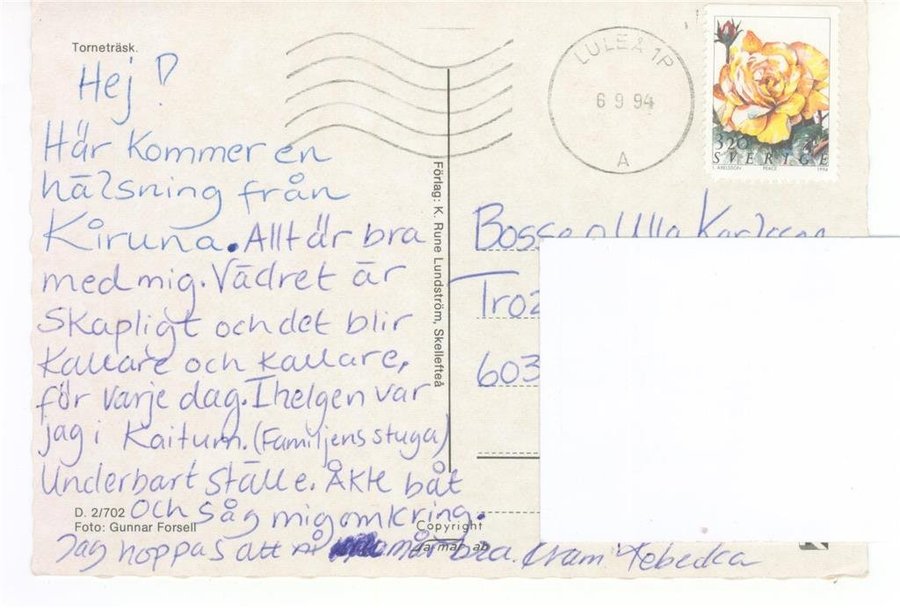 Torneträsk.
Hej!
Här kommer en
hälsning från
Kiruna. Allt är bra
med mig. Vädret är
skapligt och det blir
kallare och kallare,
för varje dag. I helgen var
jag i Kaitum. (Familjens stuga)
Underbart ställe. Åkte båt
och såg mig omkring.
Jag hoppas att ni mår bra. Kram
D. 2/702
Foto: Gunnar Forsell
Förlag: K. Rune Lundström, Skellefteå
Copyright
LULEÅ 1P
6 9 94
A
320
SVERIGE
PEACE
1994
Bosse o Ulla Karlsson
Troz
603